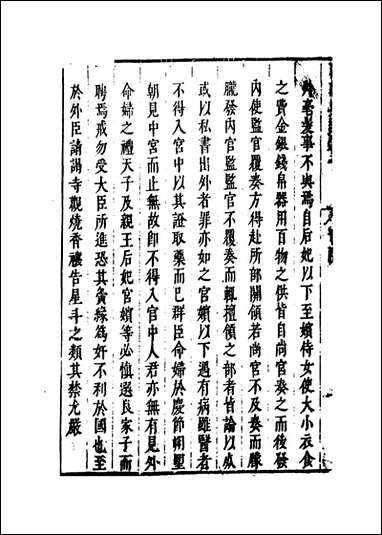 外毫髮事不與焉自后妃以下至嬪侍女使大小衣食
之費金銀錢帛器用百物之供皆自尚宮奏之而後發
內使監官覆奏方得赴所部關領若尚宮不及奏而朦
朧發內官監監官不覆奏而輒擅領之部者皆論以死
或以私書出外者罪亦如之宮嬪以下遇有病雖醫者
不得入宮中以其證取藥而已群臣命婦於慶節朔望
朝見中宮而止無故卽不得入宮中人君亦無有見外
命婦之禮天子及親王后妃宮嬪等必慎選良家子而
聘焉戒勿受大臣所進恐其夤緣為奸不利於國也至
於外臣請謁寺觀燒香禳告星斗之類其禁尤嚴